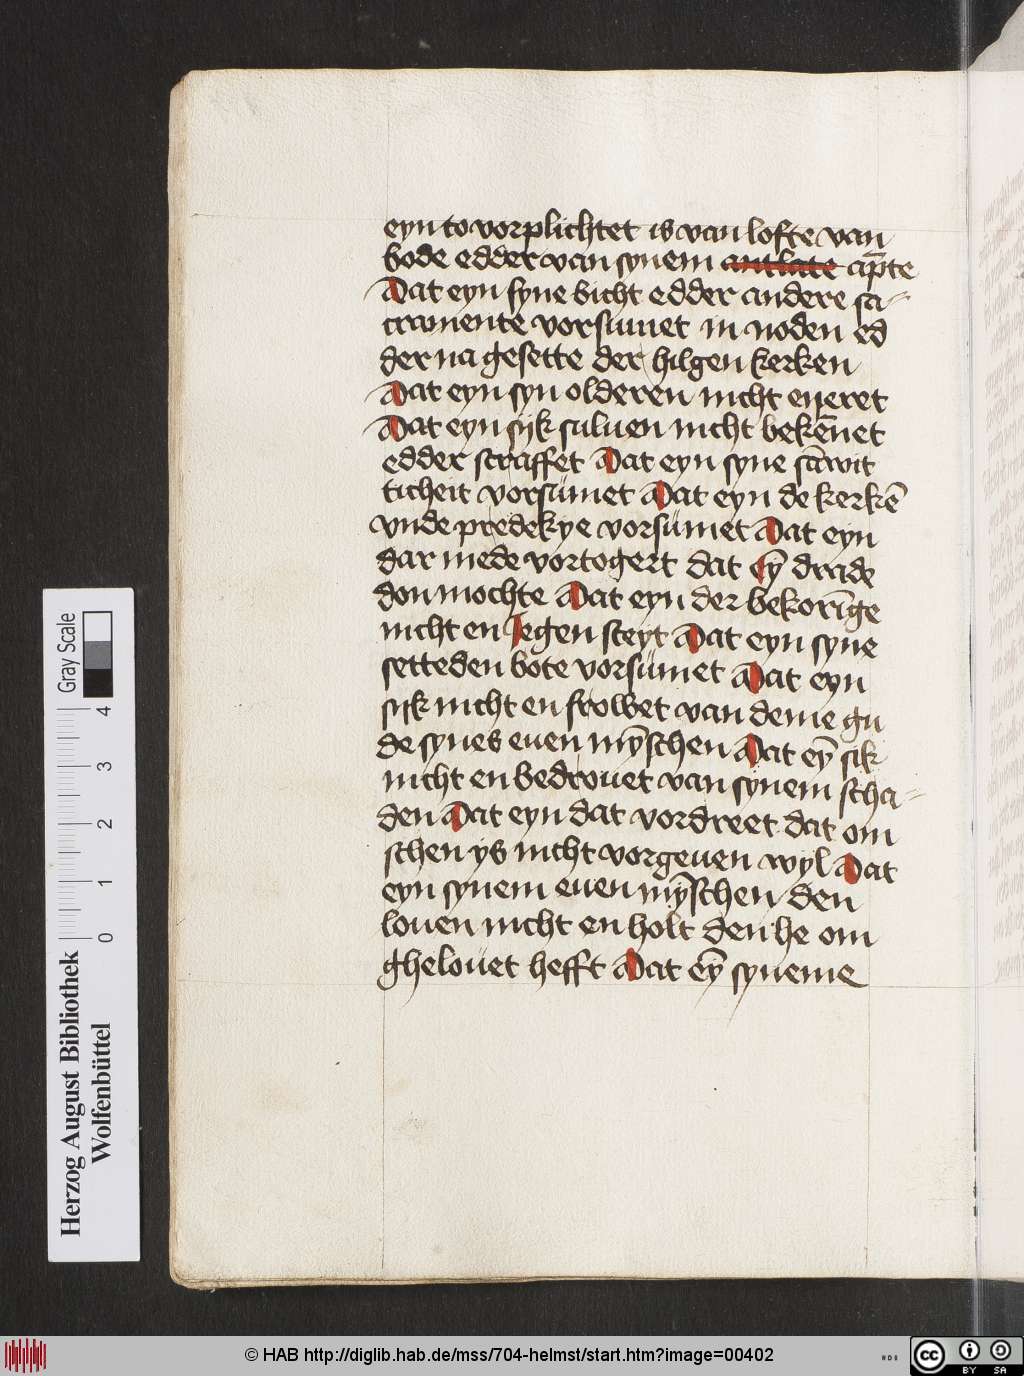 eyn to vorplichtet is van lofte van
bode edder van synem antlate ap̄te
Dat eyn syne bicht edder andere sa⸗
cramente vorsumet in noden ed
der na gesette der hilgen kerken
Dat eyn syn olderen nicht eneret
Dat eyn sijk suluen nicht bekēnet
edder straffet Dat eyn syne sāwit
ticheit vorsümet Dat eyn de kerkē
vnde predekye vorsümet Dat eyn
dar mede vortogert dat eȳ drade
don mochte Dat eyn der bekorīge
nicht en iegen steyt Dat eyn syne
setteden bote vorsümet Dat eyn
sijk nicht en frowet van deme gu
de synes euen mȳschen Dat eȳ sik
nicht en bedrouet van synem scha⸗
den Dat eyn dat vordreet dat om
schen ys nicht vorgeuen wyl Dat
eyn synem euen mȳschen den
louen nicht en holt den he om
ghelouet hefft Dat eȳ syneme
Herzog August Bibliothek
Wolfenbüttel
Gray Scale
0 1 2 3 4
© HAB http://diglib.hab.de/mss/704-helmst/start.htm?image=00402
cc BY SA